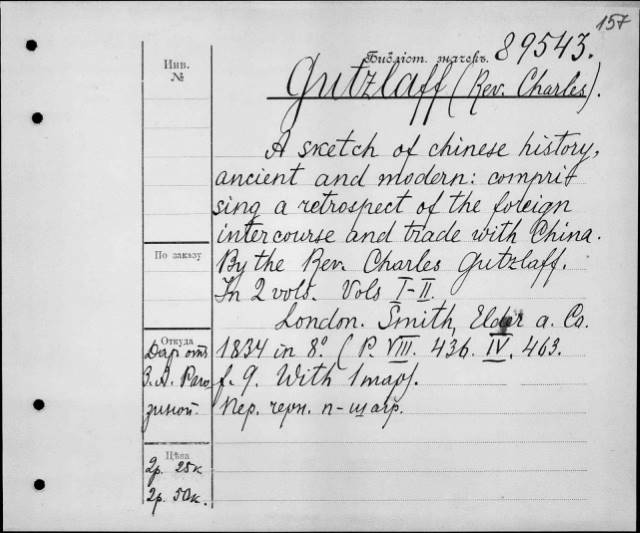 157
Библіот. значекъ. 89543.
Инв.
№
Gutzlaff (Rev. Charles).
A sketch of chinese history,
ancient and modern: compri
sing a retrospect of the foreign
intercourse and trade with China.
По заказу
By the Rev. Charles Gutzlaff.
In 2 vols. Vols I-II.
London. Smith, Elder a. Co.
Откуда
Даръ отъ
З. А. Раго
зиной.
1834 in 8º. (P. VIII. 436. IV. 463.
f. 9. With 1 map).
Пер. черн. п-шагр.
Цѣна
2р. 25к
2р. 50к.